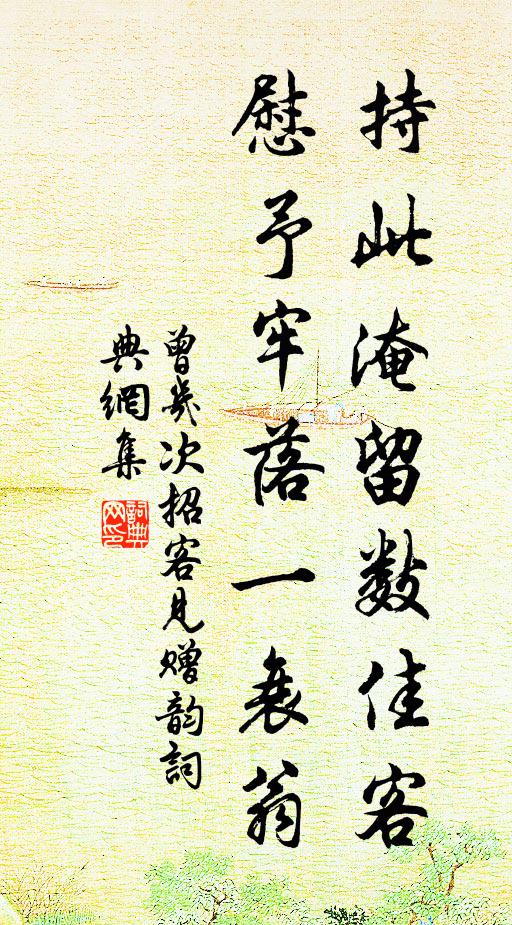 持此淹留数佳客
慰予牢落一衰翁
曾幾次招客見贈韵詞
典網集
詞典網印